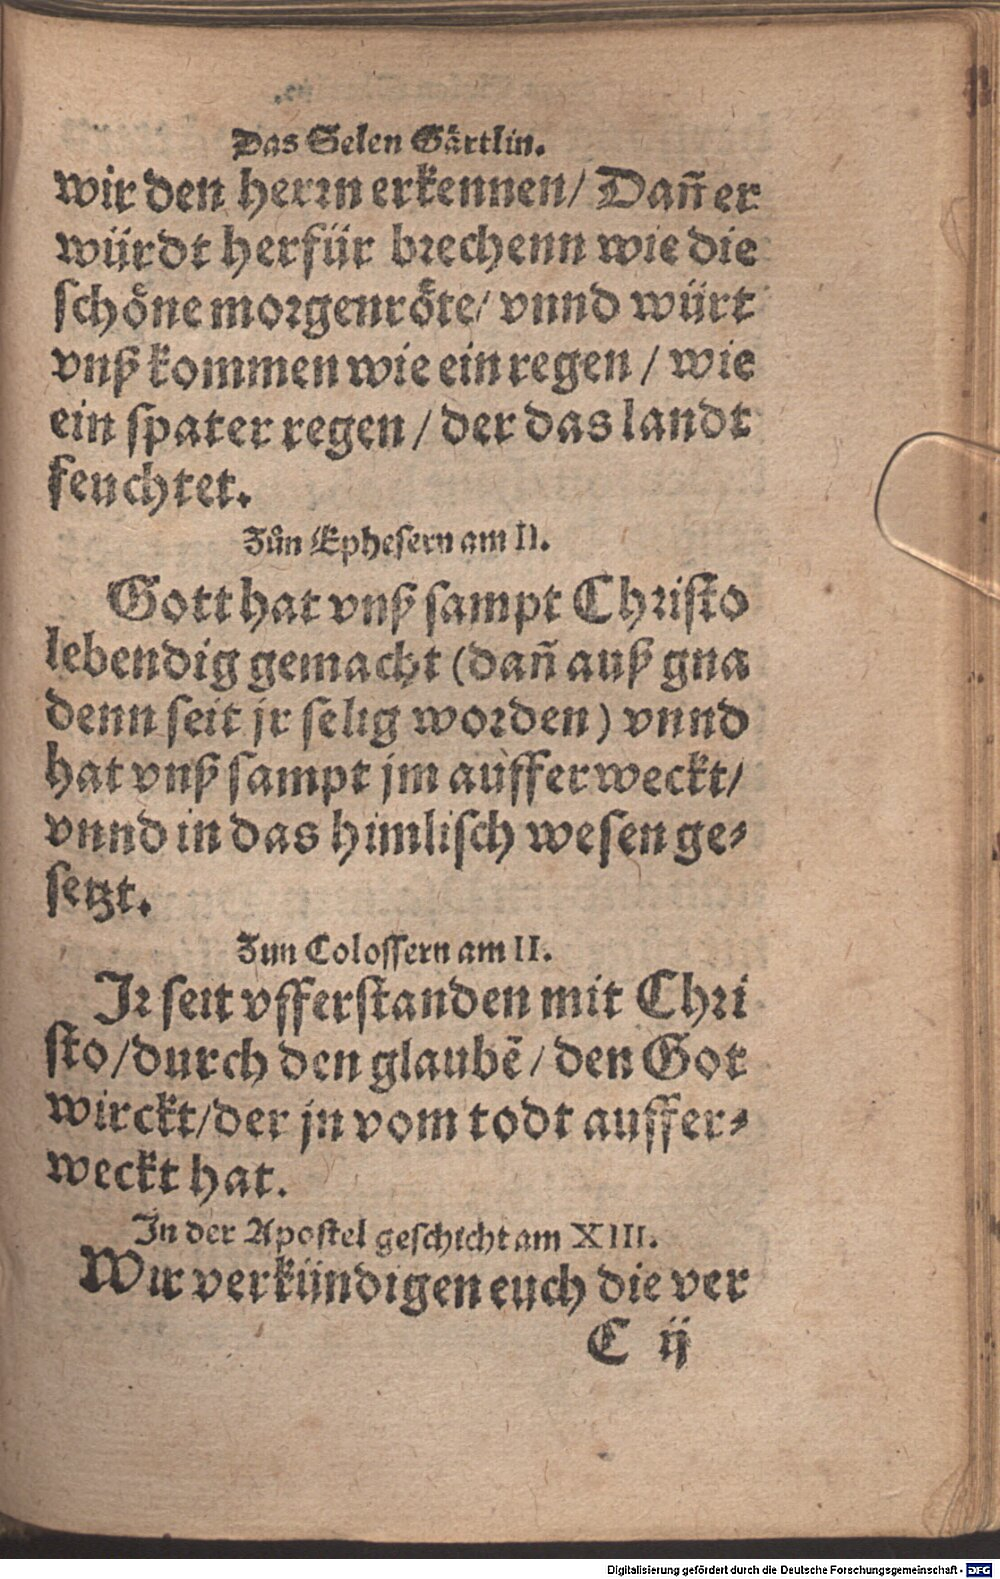 Das Selen Gärtlin.
wir den herrn erkennen/ Dañ er
würdt herfür brechenn wie die
schöne morgenröte/ vnnd würt
vnß kommen wie ein regen / wie
ein spater regen / der das landt
feuchtet.
Zůn Ephesern am II.
Gott hat vnß sampt Christo
lebendig gemacht (dañ auß gna
denn seit jr selig worden) vnnd
hat vnß sampt jm aufferweckt/
vnnd in das himlisch wesen ge-
setzt.
Zun Colossern am II.
Ir seit vfferstanden mit Chri
sto/durch den glaubē/ den Got
wirckt/der jn vom todt auffer-
weckt hat.
In der Apostel geschicht am XIII.
Wir verkündigen euch die ver
C ij
Digitalisierung gefördert durch die Deutsche Forschungsgemeinschaft - DFG